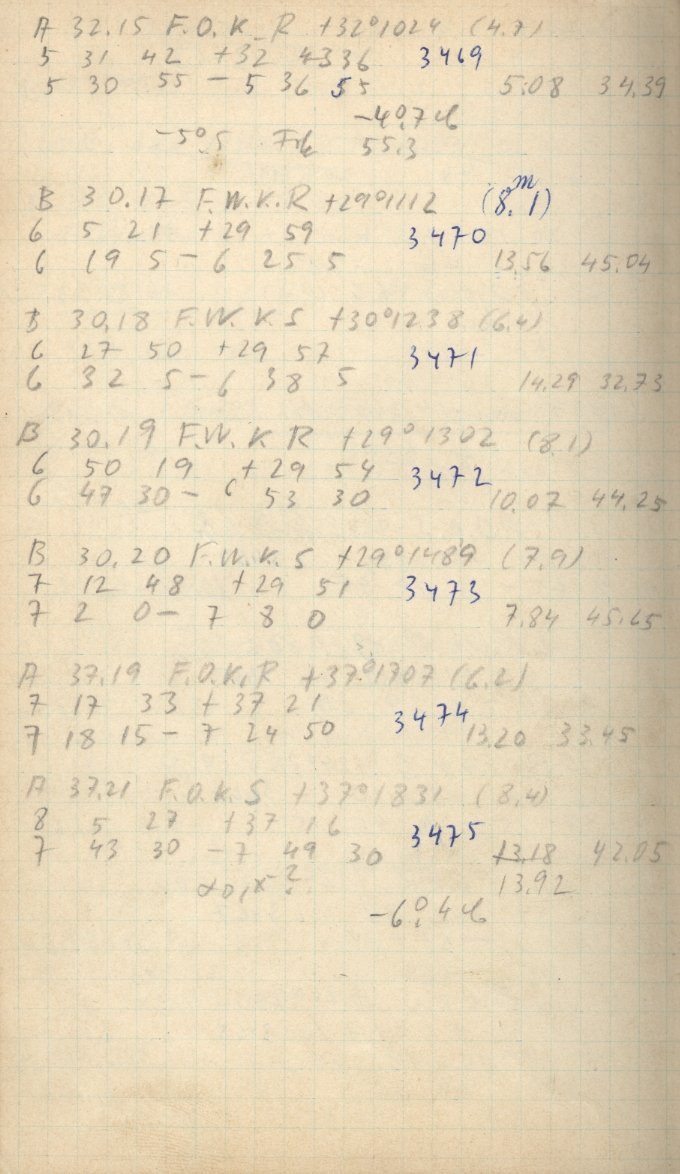 A 32.15 F.O.K. R +32°1024 (4.7)
5 31 42 +32 4336 3469
5 30 55 - 5 36 55 5.08 34.39
-4°.7 C
-5°.5 55.3
B 30.17 F.W.K.R +29°1112 (8.1)ᵐ
6 5 21 +29 59 3470
6 19 5 - 6 25 5 13.56 45.04
B 30.18 F.W.K.S +30°1238 (6.4)
6 27 50 +29 57 3471
6 32 5 - 6 38 5 14.29 32.73
B 30.19 F.W.K R +29°1302 (8.1)
6 50 19 +29 54 3472
6 47 30 - 6 53 30 10.07 44.25
B 30.20 F.W.K.S +29°1489 (7.9)
7 12 48 +29 51 3473
7 2 0 - 7 8 0 7.84 45.65
A 37.19 F.O.K.R +37°1707 (6.2)
7 17 33 +37 21 3474
7 18 15 - 7 24 50 13.20 33.45
A 37.21 F.O.K.S +37°1831 (8.4)
8 5 27 +37 16 3475
7 43 30 - 7 49 30 13.18 42.05
13.92
-6°.4 C